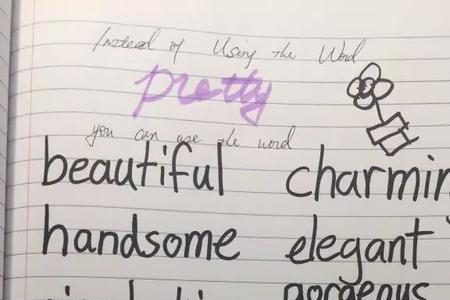 Instead of Using the Word
pretty
you can use the word
beautiful charmin
handsome elegant
gorgeous